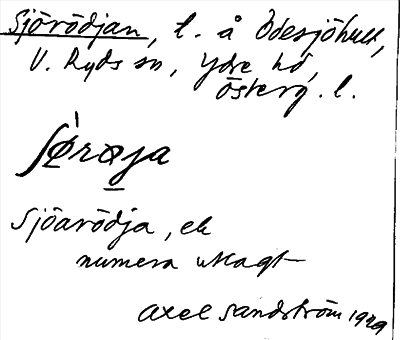 Sjörödjan, t. å Ödesjöhult,
V. Ryds sn, Ydre hd,
Österg. l.
Sjöarödja, ek
numera utlagt
Axel Sandström 1929